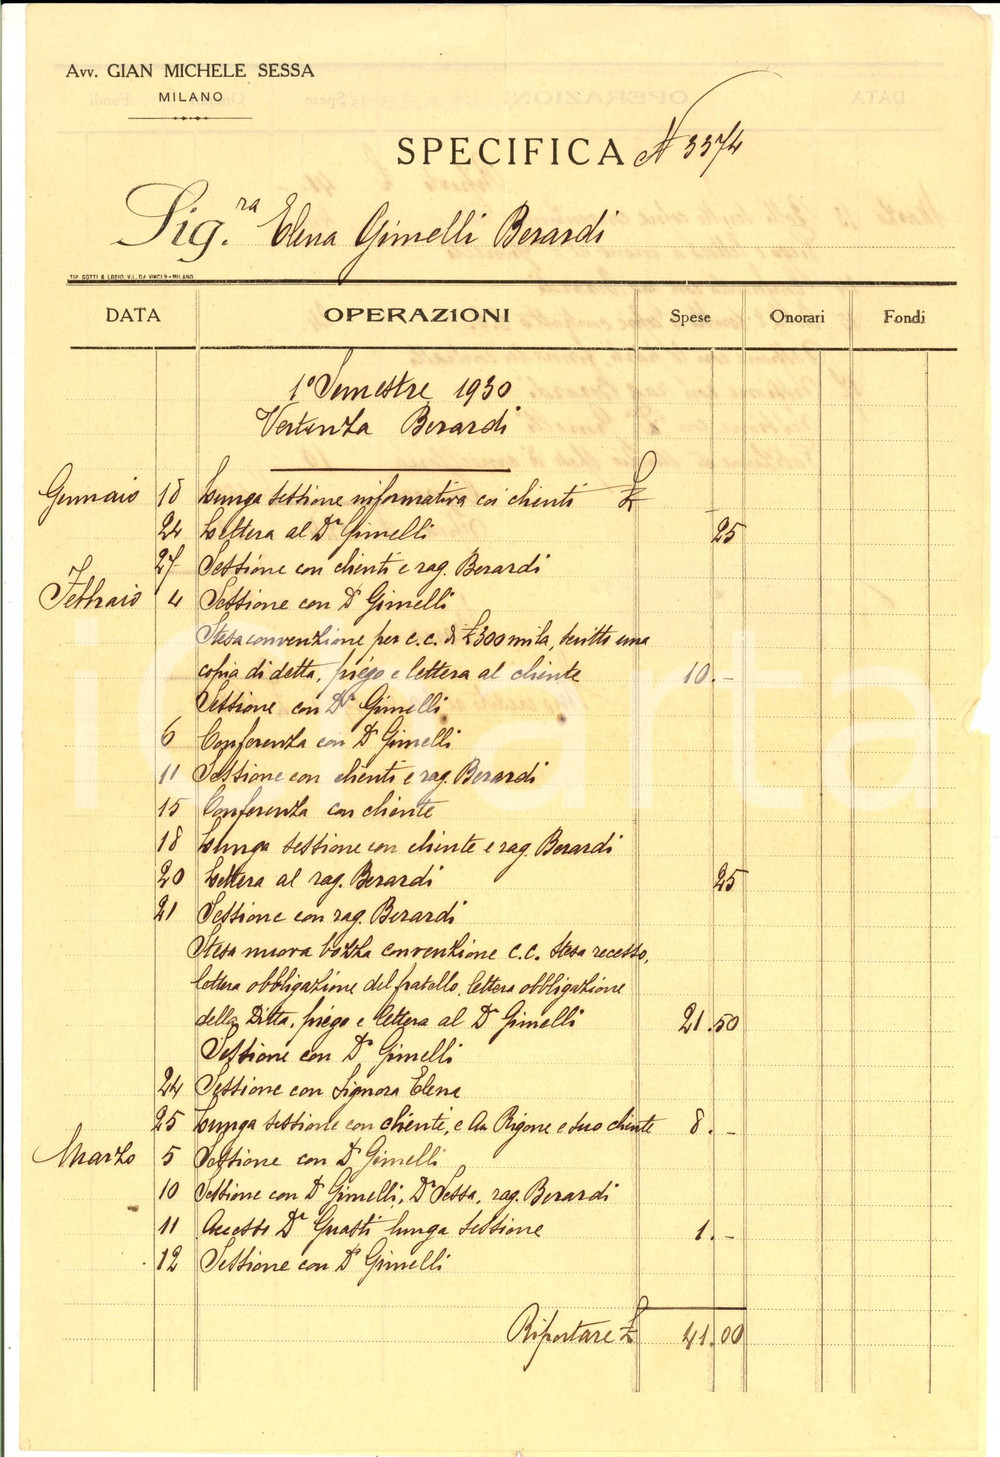 Avv. GIAN MICHELE SESSA
MILANO
SPECIFICA N 3374
Sig.ra Elena Gimelli Berardi
TIP. GOTTI & LORIO, V. L. DA VINCI 5 - MILANO
DATA OPERAZIONI Spese Onorari Fondi
1° Semestre 1930
Vertenza Berardi
Gennaio 18 Lunga sessione informativa coi clienti £
24 Lettera al Dr Gimelli 25
27 Sessione con clienti e rag. Berardi
Febbraio 4 Sessione con Dr Gimelli
Stesa convenzione per c.c. di £ 300 mila, scritto una
copia di detta, piego e lettera al cliente 10.-
Sessione con Dr Gimelli
6 Conferenza con Dr Gimelli
11 Sessione con clienti e rag. Berardi
15 Conferenza con cliente
18 Lunga sessione con cliente e rag. Berardi
20 Lettera al rag. Berardi 25
21 Sessione con rag. Berardi
Stesa nuova bozza convenzione c.c. stesa recesso,
lettera obbligazione del fratello, lettera obbligazione
della Ditta, piego e lettera al Dr Gimelli 21.50
Sessione con Dr Gimelli
24 Sessione con Signora Elena
25 Lunga sessione con clienti, e Av Rigone e suo cliente 8.-
Marzo 5 Sessione con Dr Gimelli
10 Sessione con Dr Gimelli, Dr Sessa, rag. Berardi
11 Accesso Dr Guasti lunga sessione 1.-
12 Sessione con Dr Gimelli
Riportare £ 41.00